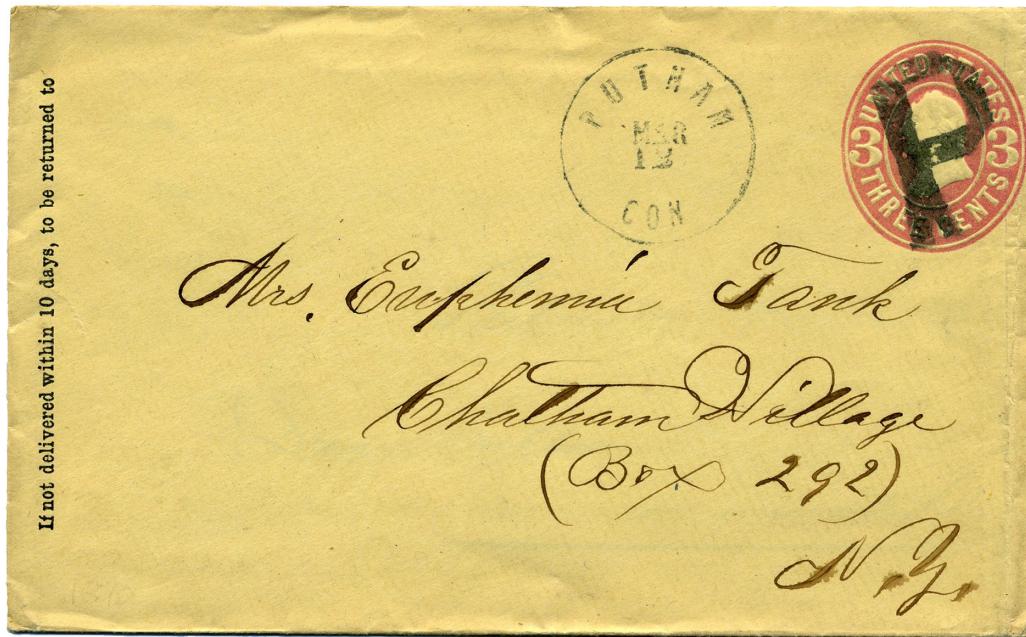 If not delivered within 10 days, to be returned to
PUTNAM
MAR
12
CON
UNITED STATES
3 3
THREE CENTS
Mrs. Euphemia Tank
Chatham Village
(Box 292)
N.Y.